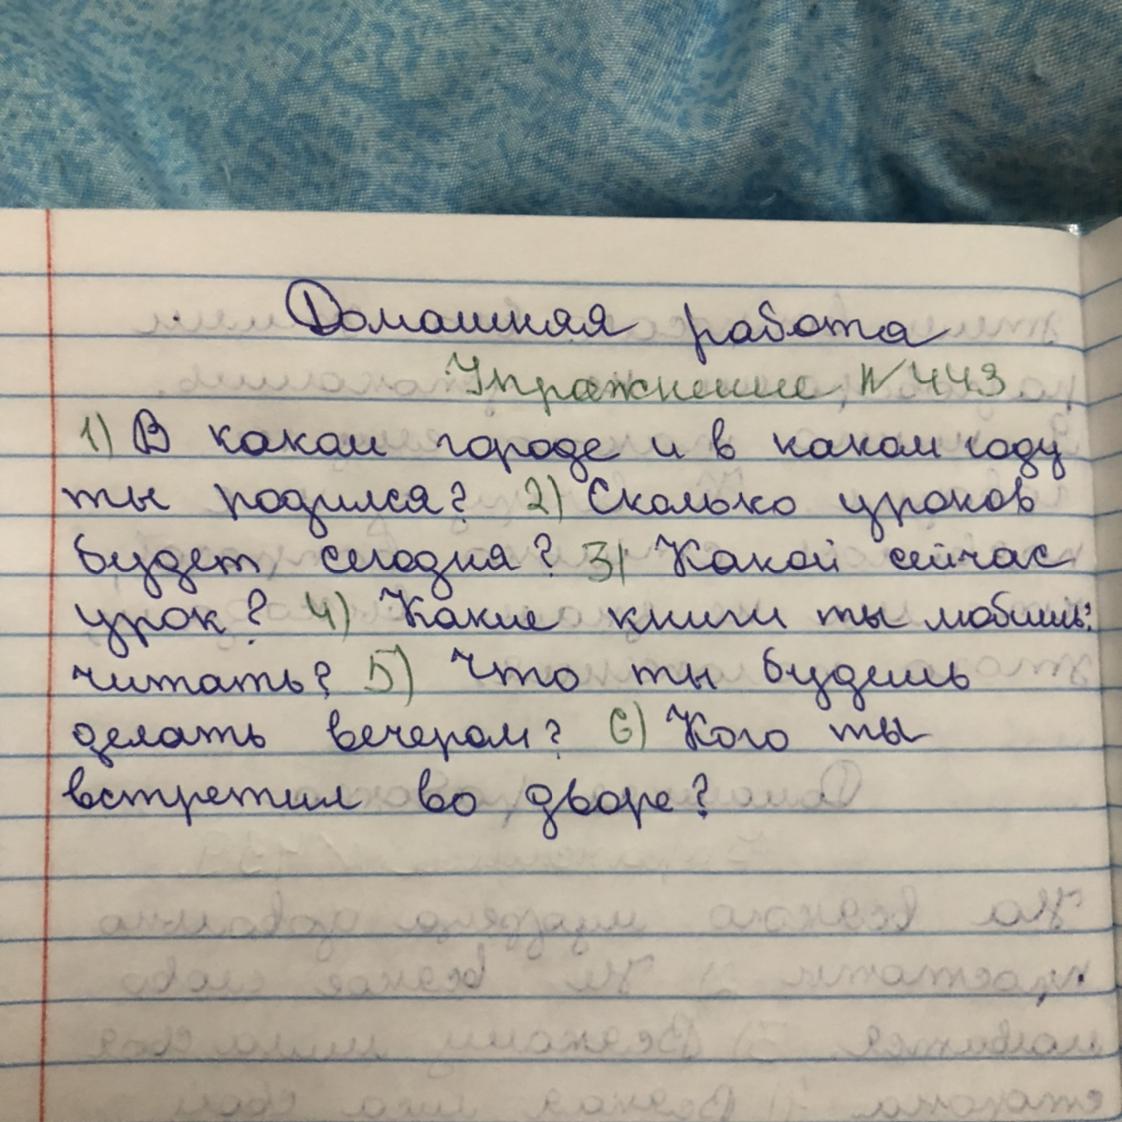 Домашняя работа
Упражнение № 443
1) В каком городе и в каком году
ты родился? 2) Сколько уроков
будет сегодня? 3) Какой сейчас
урок? 4) Какие книги ты любишь
читать? 5) Что ты будешь
делать вечером? 6) Кого ты
встретил во дворе?